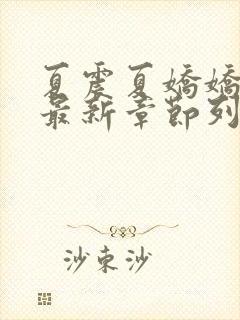 夏震夏嬌嬌
最新章節列
沙束沙